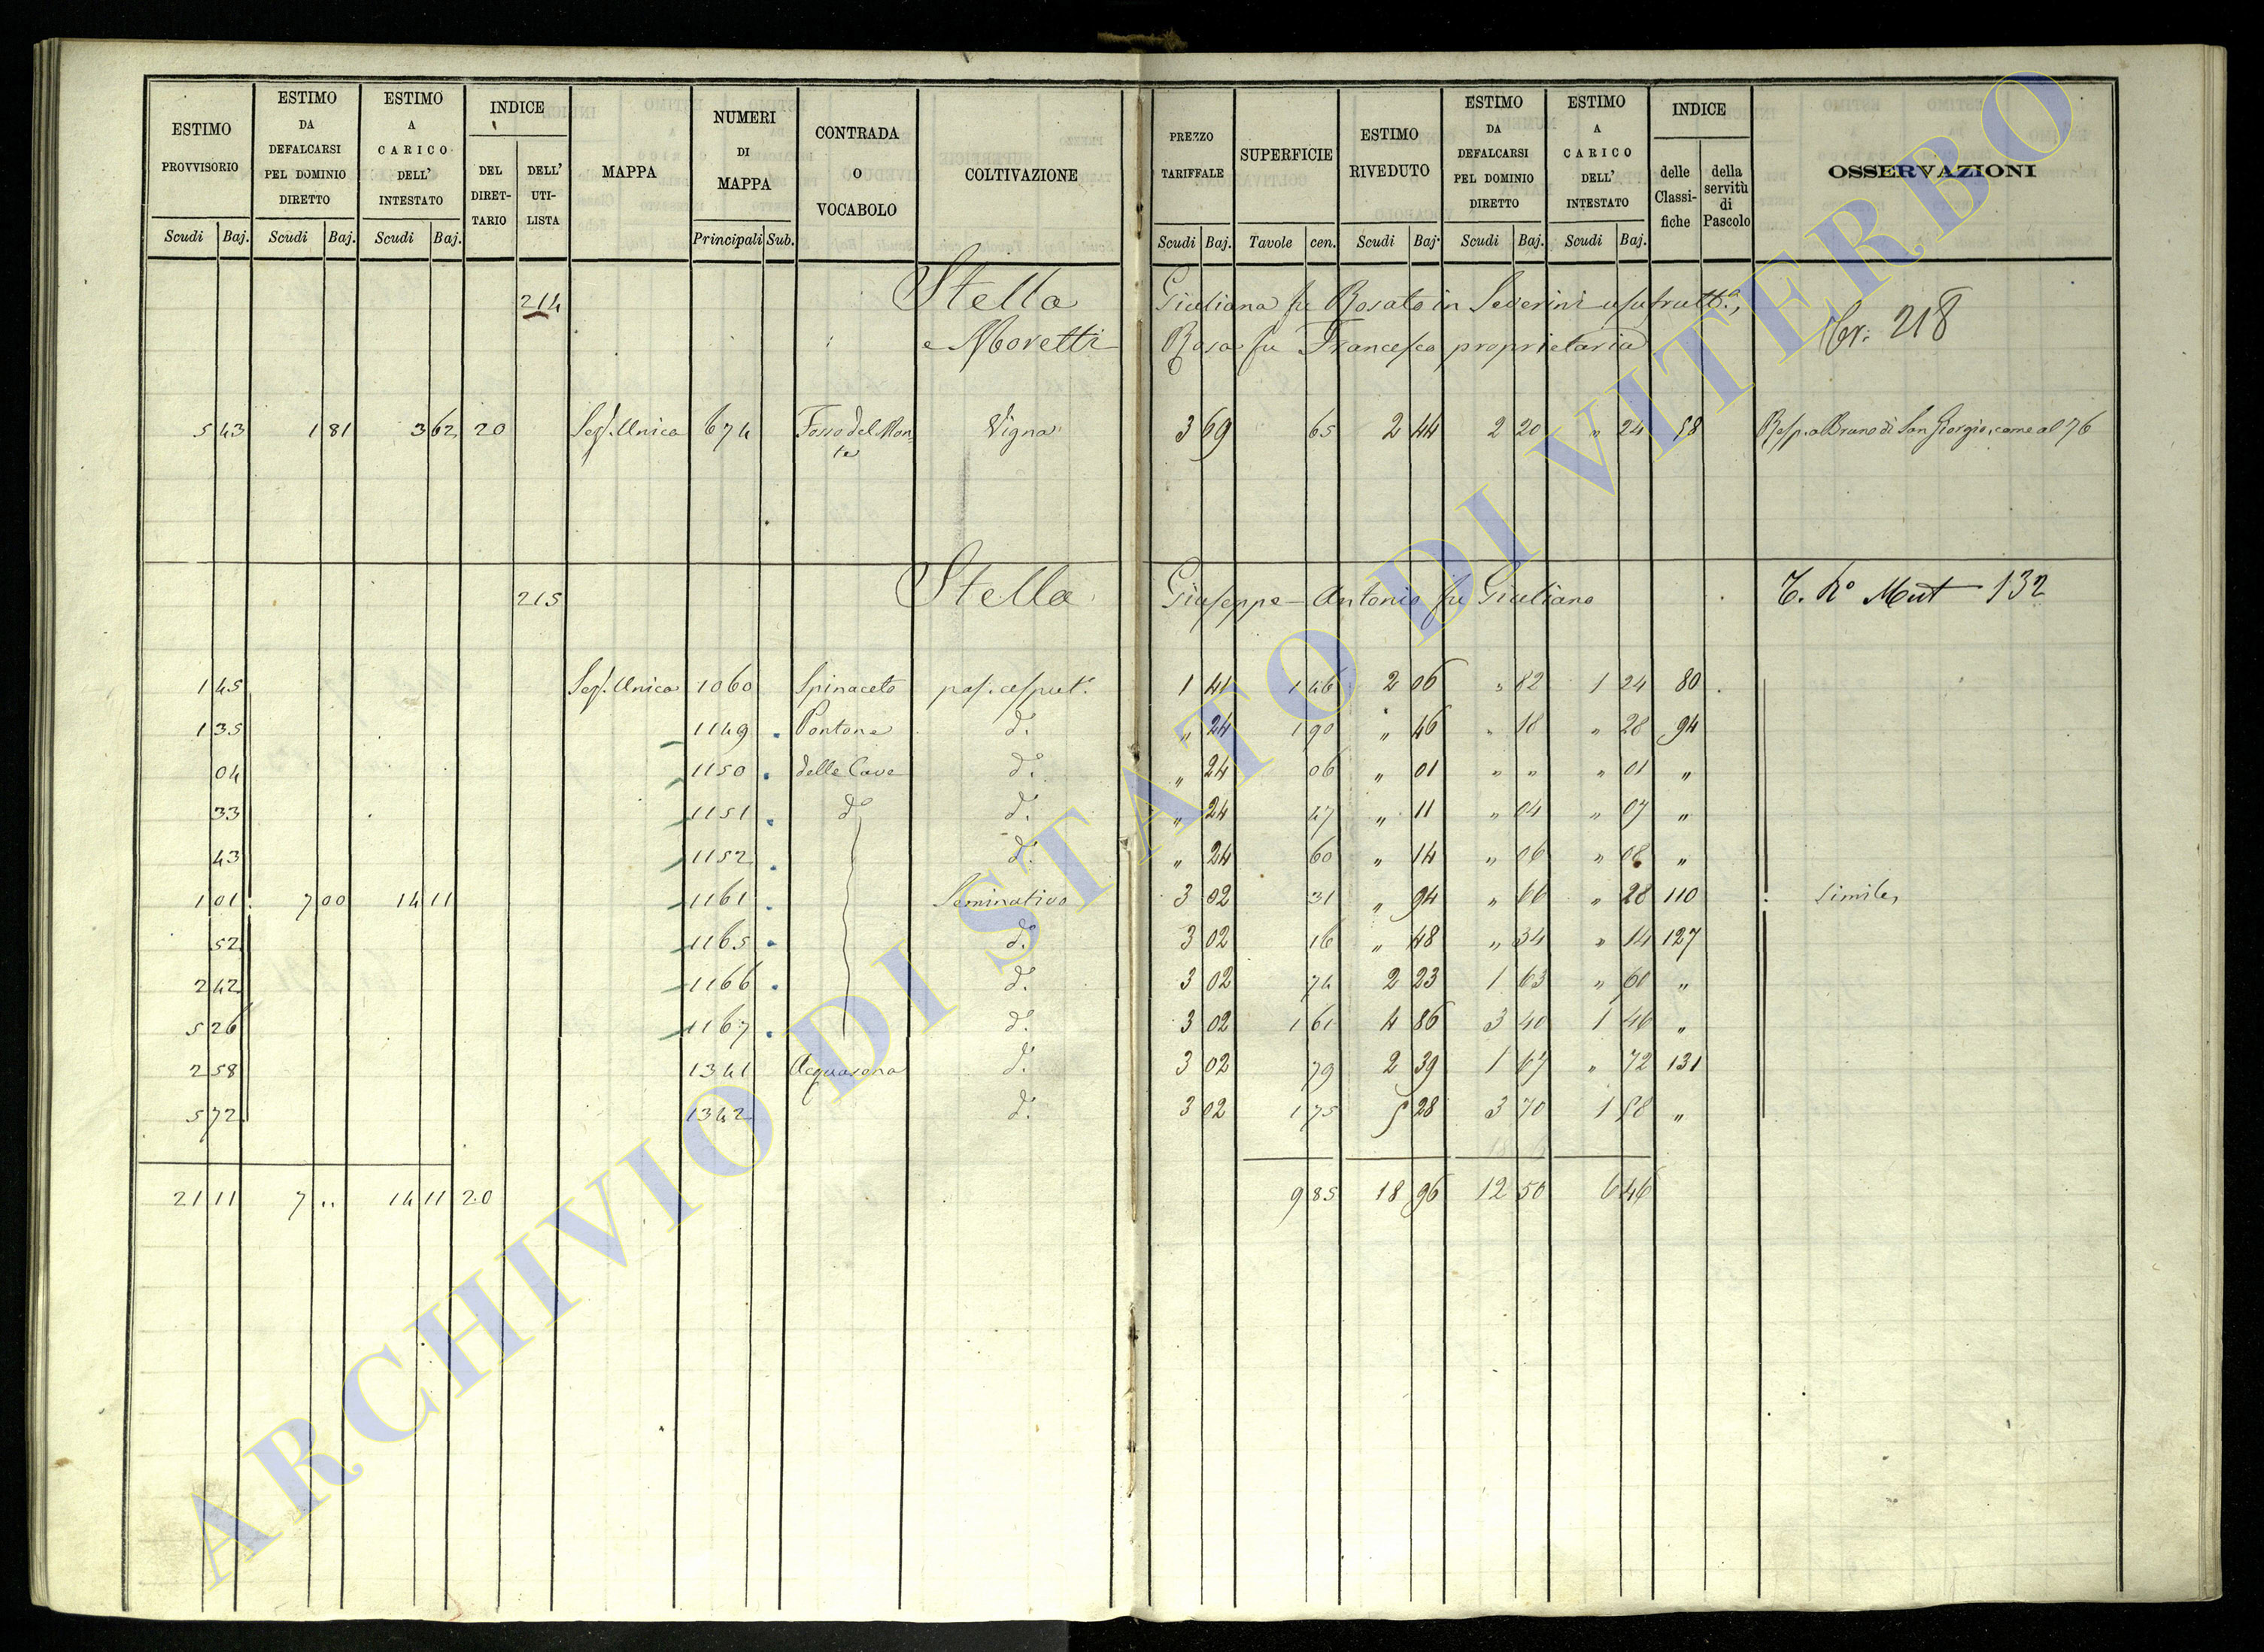 ESTIMO PROVVISORIO Scudi Baj.
ESTIMO DA DEFALCARSI PEL DOMINIO DIRETTO Scudi Baj.
ESTIMO A CARICO DELL' INTESTATO Scudi Baj.
INDICE DEL DIRET-TARIO DELL' UTI-LISTA
MAPPA
NUMERI DI MAPPA Principali Sub.
CONTRADA O VOCABOLO
COLTIVAZIONE
PREZZO TARIFFALE Scudi Baj.
SUPERFICIE Tavole cen.
ESTIMO RIVEDUTO Scudi Baj.
ESTIMO DA DEFALCARSI PEL DOMINIO DIRETTO Scudi Baj.
ESTIMO A CARICO DELL' INTESTATO Scudi Baj.
INDICE delle Classi-fiche della servitù di Pascolo
OSSERVAZIONI
214 Stella Giuliana fu Rosato in Severini usufrutt.a,
e Moretti Rosa fu Francesco proprietaria 218
5 43 1 81 3 62 20 Sez. Unica 674 Fosso del Mon- Vigna 3 69 65 2 44 2 20 " 24 58 Resp. a Bruno di San Giorgio, come al 76
te
215 Stella Giuseppe-Antonio fu Giuliano T. No Mut 132
1 45 Sez. Unica 1060 Spinaceto pas. cesput. 1 41 1 46 2 06 " 82 1 24 80
1 35 1149 Pontone d.o " 24 1 90 " 46 " 18 " 28 94
04 1150 delle Cave d.o " 24 06 " 01 " " " 01 "
33 1151 do d.o " 24 47 " 11 " 04 " 07 "
43 1152 d.o " 24 60 " 14 " 06 " 08 "
1 01 7 00 14 11 1161 Seminativo 3 02 31 " 94 " 66 " 28 110 Simile
52 1165 d.o 3 02 16 " 48 " 34 " 14 127
2 42 1166 d.o 3 02 74 2 23 1 63 " 60 "
5 26 1167 d.o 3 02 1 61 4 86 3 40 1 46 "
2 58 1341 Acquasona d.o 3 02 79 2 39 1 67 " 72 131
5 72 1342 d.o 3 02 1 75 5 28 3 70 1 58 "
21 11 7 " 14 11 20 9 85 18 96 12 50 6 46
ARCHIVIO DI STATO DI VITERBO